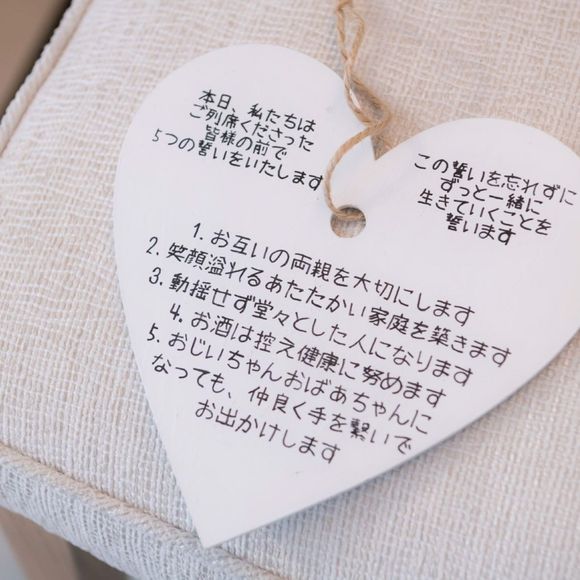 本日、私たちは
ご列席くださった
皆様の前で
5つの誓いをいたします
この誓いを忘れずに
ずっと一緒に
生きていくことを
誓います
1. お互いの両親を大切にします
2. 笑顔溢れるあたたかい家庭を築きます
3. 動揺せず堂々とした人になります
4. お酒は控え健康に努めます
5. おじいちゃんおばあちゃんに
なっても、仲良く手を繋いで
お出かけします